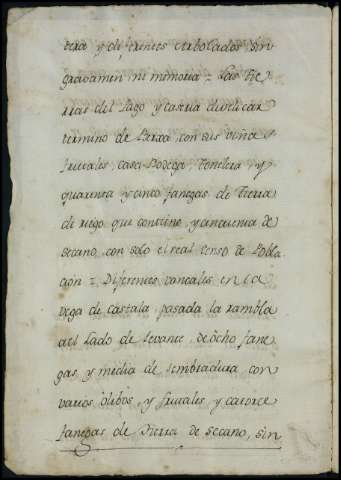 tera y diferentes Arbolados, sin
gravamen, ni memoria = Las tie-
rras del Lago y
termino de Berxa, con sus viña
frutales, casa Bodega, Tonelera, y
quarenta y cinco fanegas de Tierra
de riego que contiene, y cincuenta de
secano, con solo el real censo de Pobla
cion = Diferentes vancales en la
vega de castala, pasada la rambla
del Lado de Levante, de ôcho fane
gas, y media de sembradura con
varios ôlibos, y frutales y catorce
fanegas de tierra de secano, sin